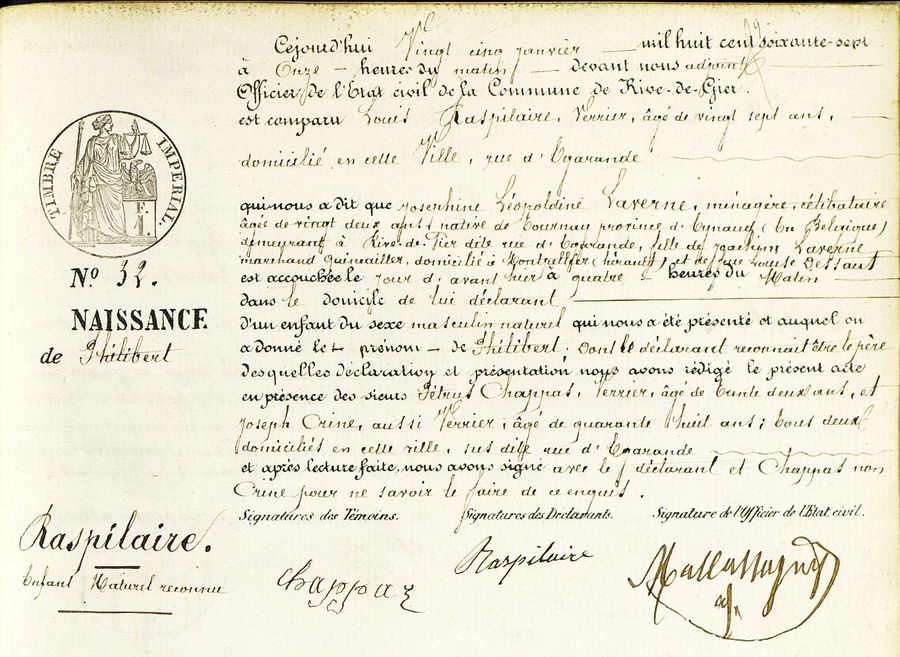 Cejourd'hui Vingt cinq janvier mil huit cent soixante-sept
à Onze heures du matin devant nous adjoint
Officier de l'Etat civil de la Commune de Rive-de-Gier.
est comparu Louis Raspilaire, Verrier, âgé de vingt sept ans,
domicilié en cette Ville, rue d'Egarande
qui nous a dit que Josephine Léopoldine Laverne, ménagère, célibataire
âgée de vingt deux ans, native de Tournay province d'Aynaud, (En Belgique)
demeurant à Rive-de-Gier dite rue d'Egarande, fille de Joachim Laverne
marchand Quincailler, domicilié à Montpellier (hérault) et de Louise Dessaut
est accouchée le jour d'avant hier à quatre heures du Matin
dans le domicile de lui déclarant
d'un enfant du sexe masculin naturel qui nous a été présenté et auquel on
a donné le prénom de Philibert. Dont le déclarant reconnait être le père
desquelles déclaration et présentation, nous avons rédigé le présent acte
en présence des sieurs Pétrus Chappat, Verrier, âgé de trente deux ans, et
Joseph Crine, aussi Verrier, âgé de quarante huit ans; tous deux
domiciliés en cette ville, sus dite rue d'Egarande
et après lecture faite, nous avons signé avec le déclarant et Chappat non
Crine pour ne savoir le faire de ce enquis.
Signatures des Témoins. Signatures des Déclarants. Signature de l'Officier de l'Etat civil.
Chappaz Raspilaire
TIMBRE IMPERIAL.
F. 1.
No. 32.
NAISSANCE
de Philibert
Raspilaire.
Enfant Naturel reconnu